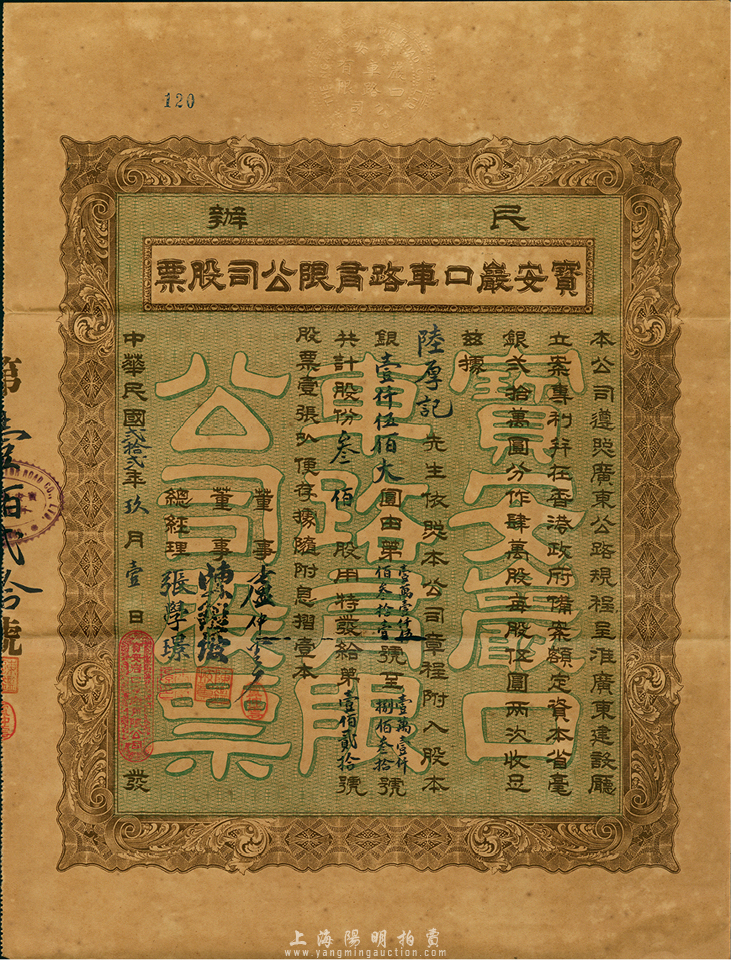 120
民辦
寶安巖口車路有限公司股票
本公司遵照廣東公路規程呈准廣東建設廳
立案專利并在香港政府備案額定資本省毫
銀弍拾萬圓分作肆萬股每股伍圓兩次收足
茲據
陸厚記先生依照本公司章程附入股本
銀壹仟伍佰大圓由第壹萬壹仟伍佰叁拾壹號至壹萬壹仟捌佰叁拾號
共計股份叁佰股用特發給第壹佰貳拾號
股票壹張以便存據隨附息摺壹本
董事
董事
總經理 張學璟
中華民國弍拾弍年玖月壹日發
寶安巖口
車路有限
公司股票
第壹佰貳拾號
ROAD CO., LTD.
上海陽明拍賣
www.yangmingauction.com